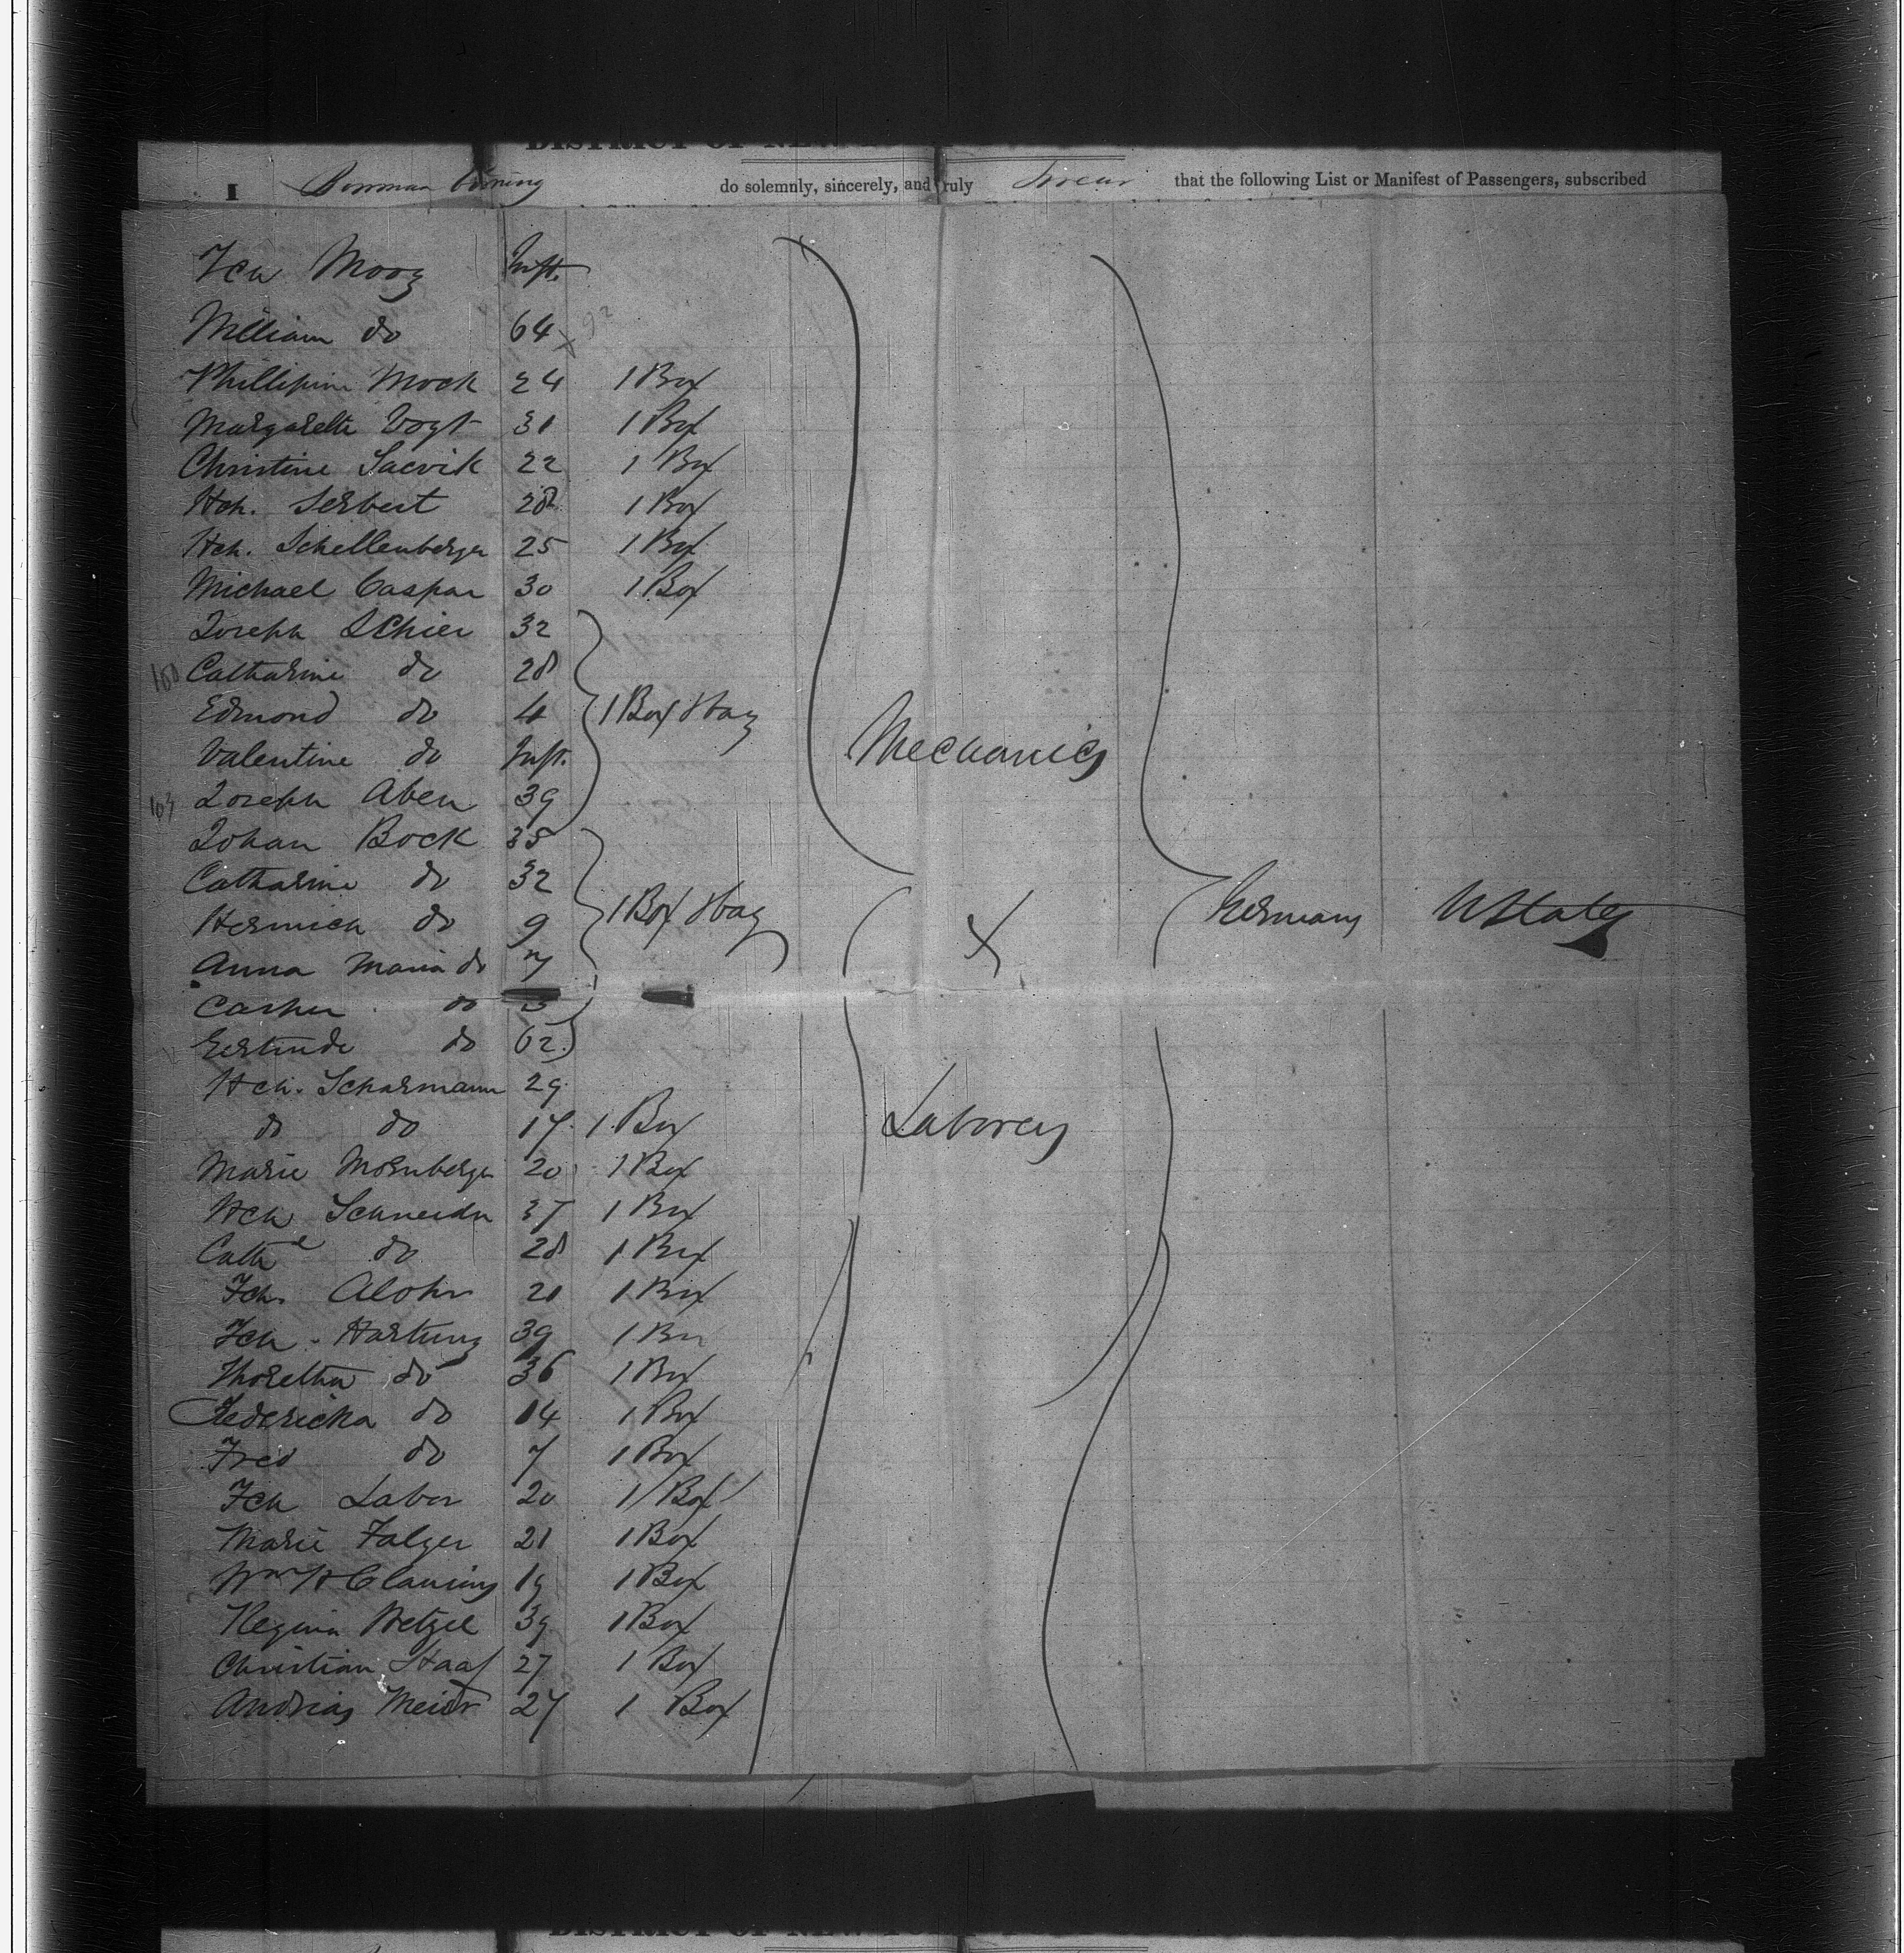 DISTRICT OF NEW
I Bowman Corning do solemnly, sincerely, and truly swear that the following List or Manifest of Passengers, subscribed
Fch Moog Inft.
William do 64
Phillipine Mock 24 1 Box
Margarethe Vogt 31 1 Box
Christine Sacvik 22 1 Box
Hch. Serbert 28 1 Box
Hch. Schellenberger 25 1 Box
Michael Caspar 30 1 Box
Joseph Schier 32
100 Catharine do 28
Edmond do 4 1 Box & bag
Valentine do Inft.
103 Joseph Aben 39
Mechanics
Johan Bock 35
Catharine do 32
Hermich do 9 1 Box & bag
Germany U States
Anna Maria do 7
Casper do
Gertrude do 62
Hch. Scharmann 29
do do 17 1 Box
Laborers
Marie Mornberger 20 1 Box
Hch Schneider 37 1 Box
Cath do 28 1 Box
Fch. Alohr 21 1 Box
Fch. Hartung 39 1 Box
Thoretha do 36 1 Box
Federicka do 14 1 Box
Fred do 7 1 Box
Fch Labor 20 1 Box
Marie Falger 21 1 Box
Wm H Clausing 19 1 Box
Regina Wetzel 39 1 Box
Christian Haaf 27 1 Box
Andrias Meier 27 1 Box
DISTRICT OF NEW